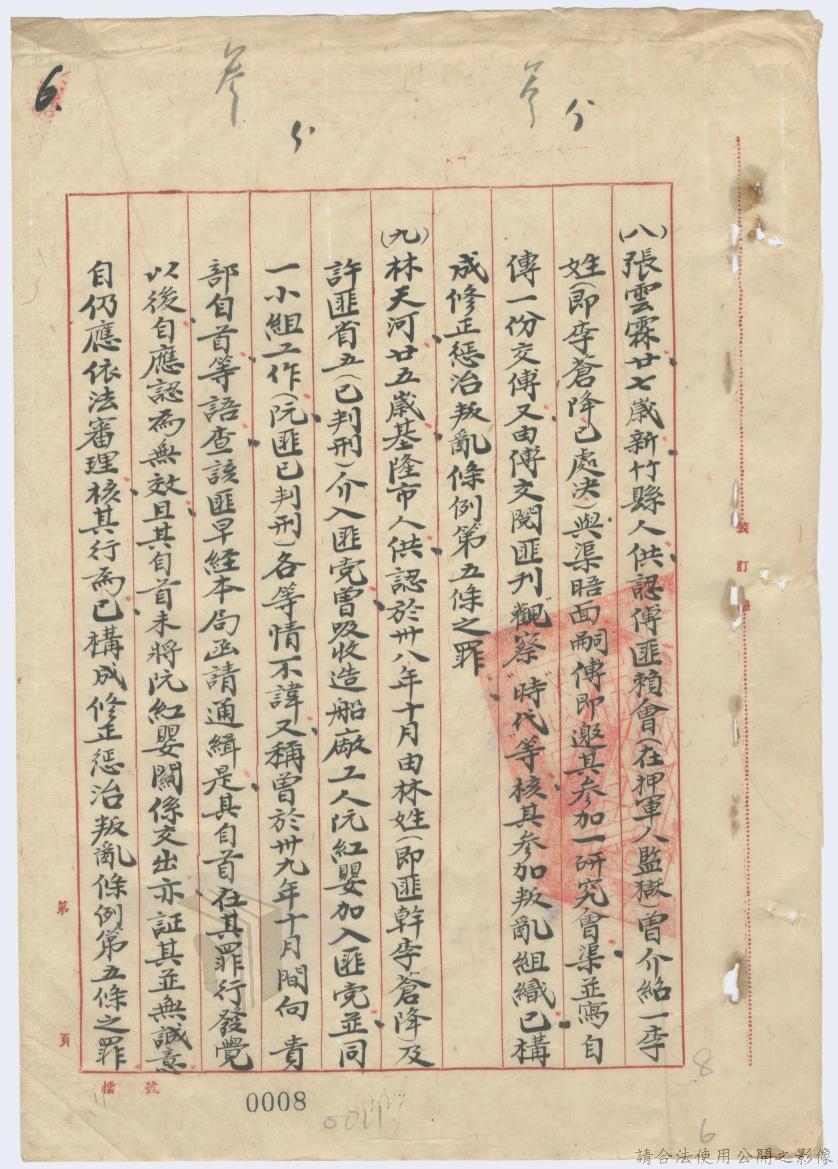 叁份
叁份
6.
(八)張雲霖廿七歲新竹縣人供認傅匪賴會(在押軍人監獄曾介紹一李
姓(即李蒼降已處決)與渠晤面嗣傅即邀其參加一研究會渠並寫自
傳一份交傅又由傅交閱匪刊"觀察""時代"等核其參加叛亂組織已構
成修正惩治叛亂條例第五條之罪
(九)林天河廿五歲基隆市人供認於卅八年十月由林姓(即匪幹李蒼降)及
許匪省五(已判刑)介入匪党曾吸收造船廠工人阮紅嬰加入匪党並同
一小組工作(阮匪已判刑)各等情不諱又稱曾於卅九年十月間向 貴
部自首等語查該匪早經本局函請通緝是其自首在其罪行發覺
以後自應認為無效且其自首未將阮紅嬰關係交出亦証其並無誠意
自仍應依法審理核其行為已構成修正惩治叛亂條例第五條之罪
裝訂線
第 頁
檔 號
0008
8
6
請合法使用公開之影像